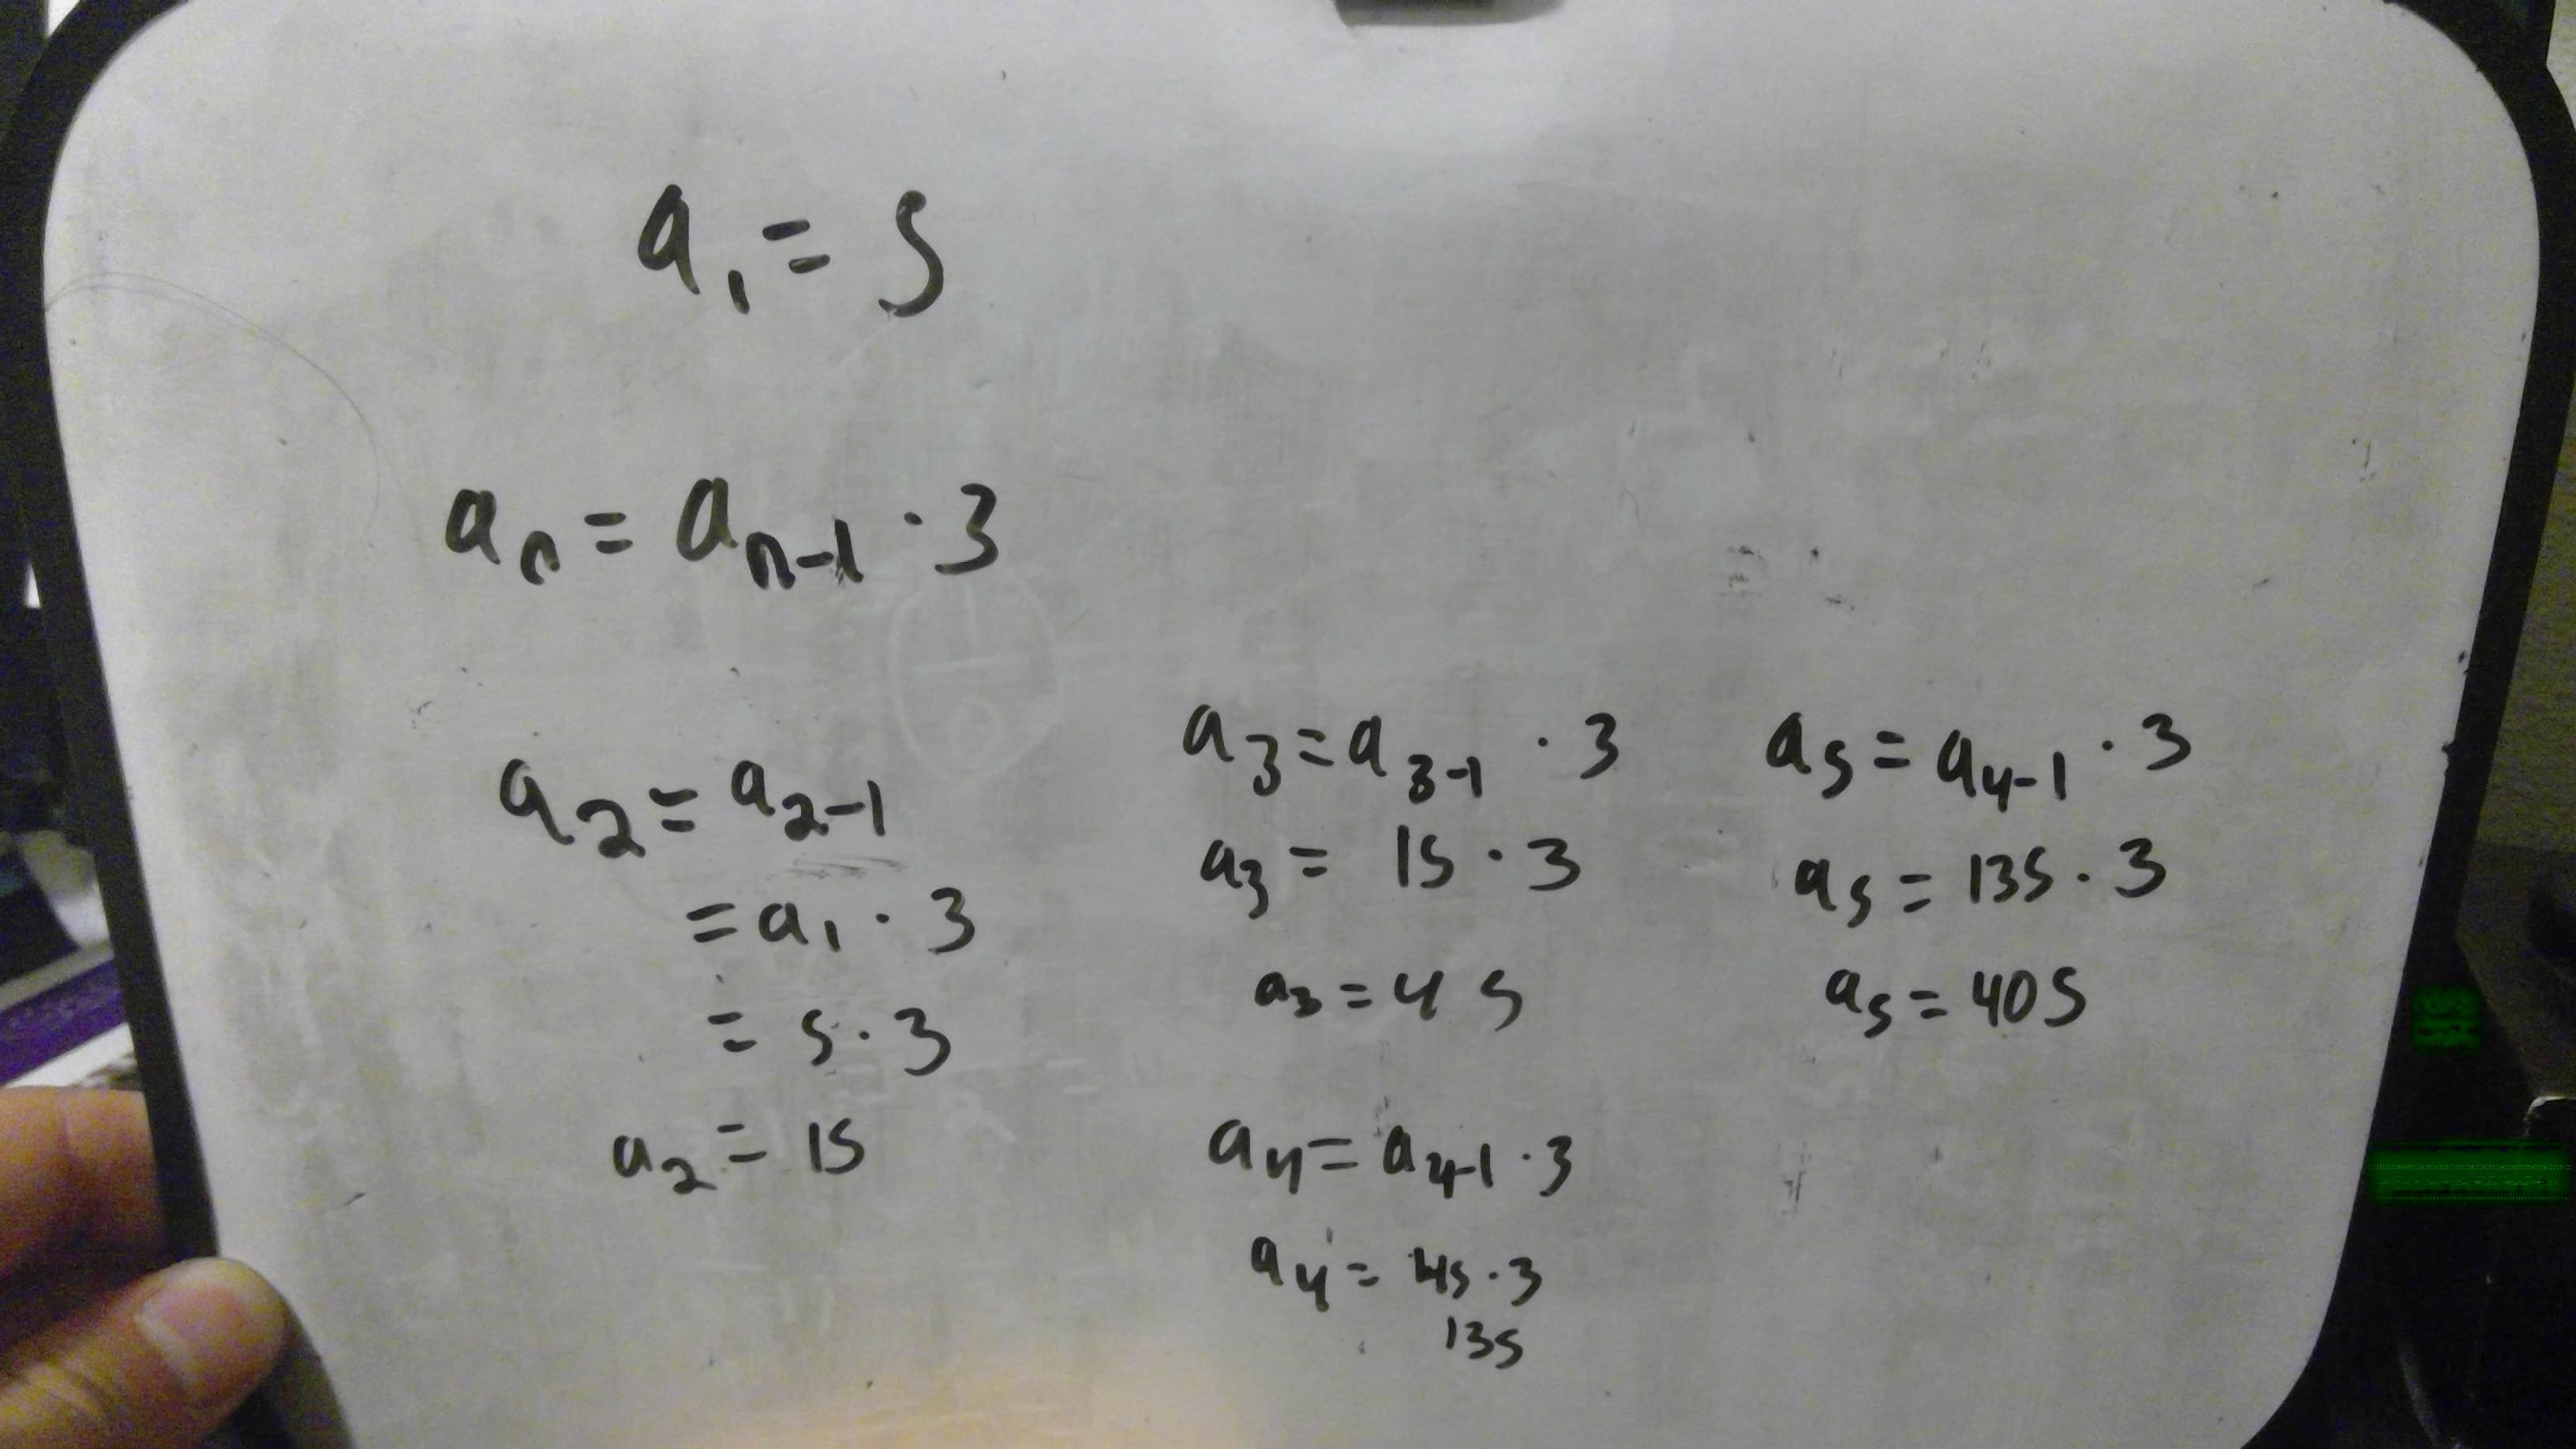 a₁ = 5
aₙ = aₙ₋₁ · 3
a₂ = a₂₋₁
= a₁ · 3
= 5 · 3
a₂ = 15
a₃ = a₃₋₁ · 3
a₃ = 15 · 3
a₃ = 45
a₄ = a₄₋₁ · 3
a₄ = 45 · 3
135
a₅ = a₄₋₁ · 3
a₅ = 135 · 3
a₅ = 405